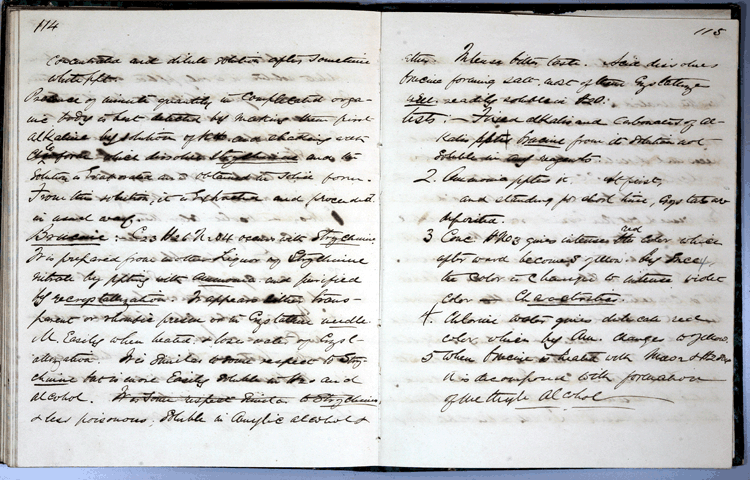 114
Concentrated and dilute solution after sometime
white ppt.
Presence of minute quantity in Complicated orga-
nic body is best detected by making them first
alkaline by solution of KH and shaking with
Chloroform which dissolves Strychnine and the
Solution is Evaporated and is obtained in Solid form.
From this solution, it is Extracted and proceeded
in usual way.
Brucine: C23 H26 N2 O4 occurs with Strychnine
It is prepared from mother liquor of Strychnine
nitrate by ppting with ammonia and purified
by recrystallization. It appears either trans-
parent or rhombic prism or in Crystalline needle.
M. Easily when heated & lose water of Cryst-
allization. It is Similar to some respect to Stry-
chnine but is more Easily soluble in H2O and
alcohol. It is Some respect Similar to Strychnine
& less poisonous, soluble in Amylic alcohol &
115
ether. Intense bitter taste. Acid dissolves
brucine forming salt. most of them Crystallize
well readily soluble in H2O:
tests: — Fixed alkalis and Carbonates of al-
kalis ppts Brucine from its solution not
soluble in any reagents.
2 Ammonia ppts it. At first,
and standing for short time, crystals are
deposited.
3 Conc HNO3 gives intense red color which
afterward becomes yellow. by
the color is changed to intense violet
color — Characteristic.
4. Chlorine water gives delicate red
color which by Am. changes to yellow.
5 When brucine is heated with
it is decomposed with formation
of methyle alcohol